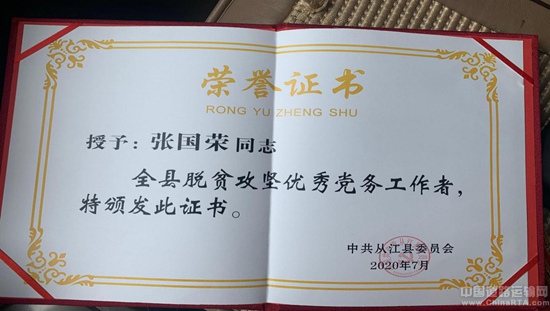 荣誉证书
RONG YU ZHENG SHU
授予：张国荣同志
全县脱贫攻坚优秀党务工作者，
特颁发此证书。
中共从江县委员会
2020年7月
中国道路运输网
www.ChinaRTA.com